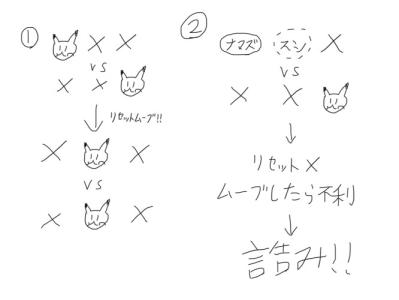 ①
× ×
VS
× ×
リセットムーブ!!
× ×
VS
× ×
②
ナマズ スシ ×
VS
× ×
リセット×
ムーブしたら不利
詰み!!